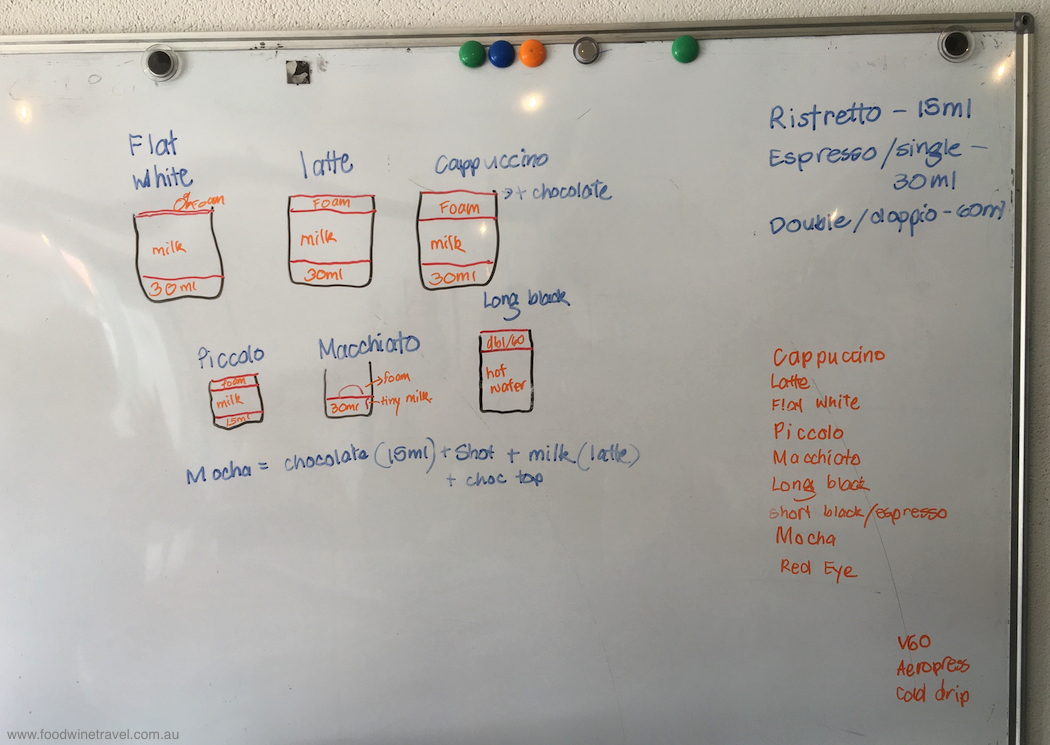 Flat
White
Ø foam
milk
30ml
latte
Foam
milk
30ml
Cappuccino
→+ chocolate
Foam
milk
30ml
Piccolo
Foam
milk
15ml
Macchiato
foam
tiny milk
30ml
Long black
dbl/60
hot
water
Mocha = chocolate (15ml) + Shot + milk (latte)
+ choc top
Ristretto - 15ml
Espresso/single -
30ml
Double/doppio - 60ml
Cappuccino
Latte
Flat White
Piccolo
Macchiato
Long black
short black/espresso
Mocha
Red Eye
V60
Aeropress
Cold drip
www.foodwinetravel.com.au